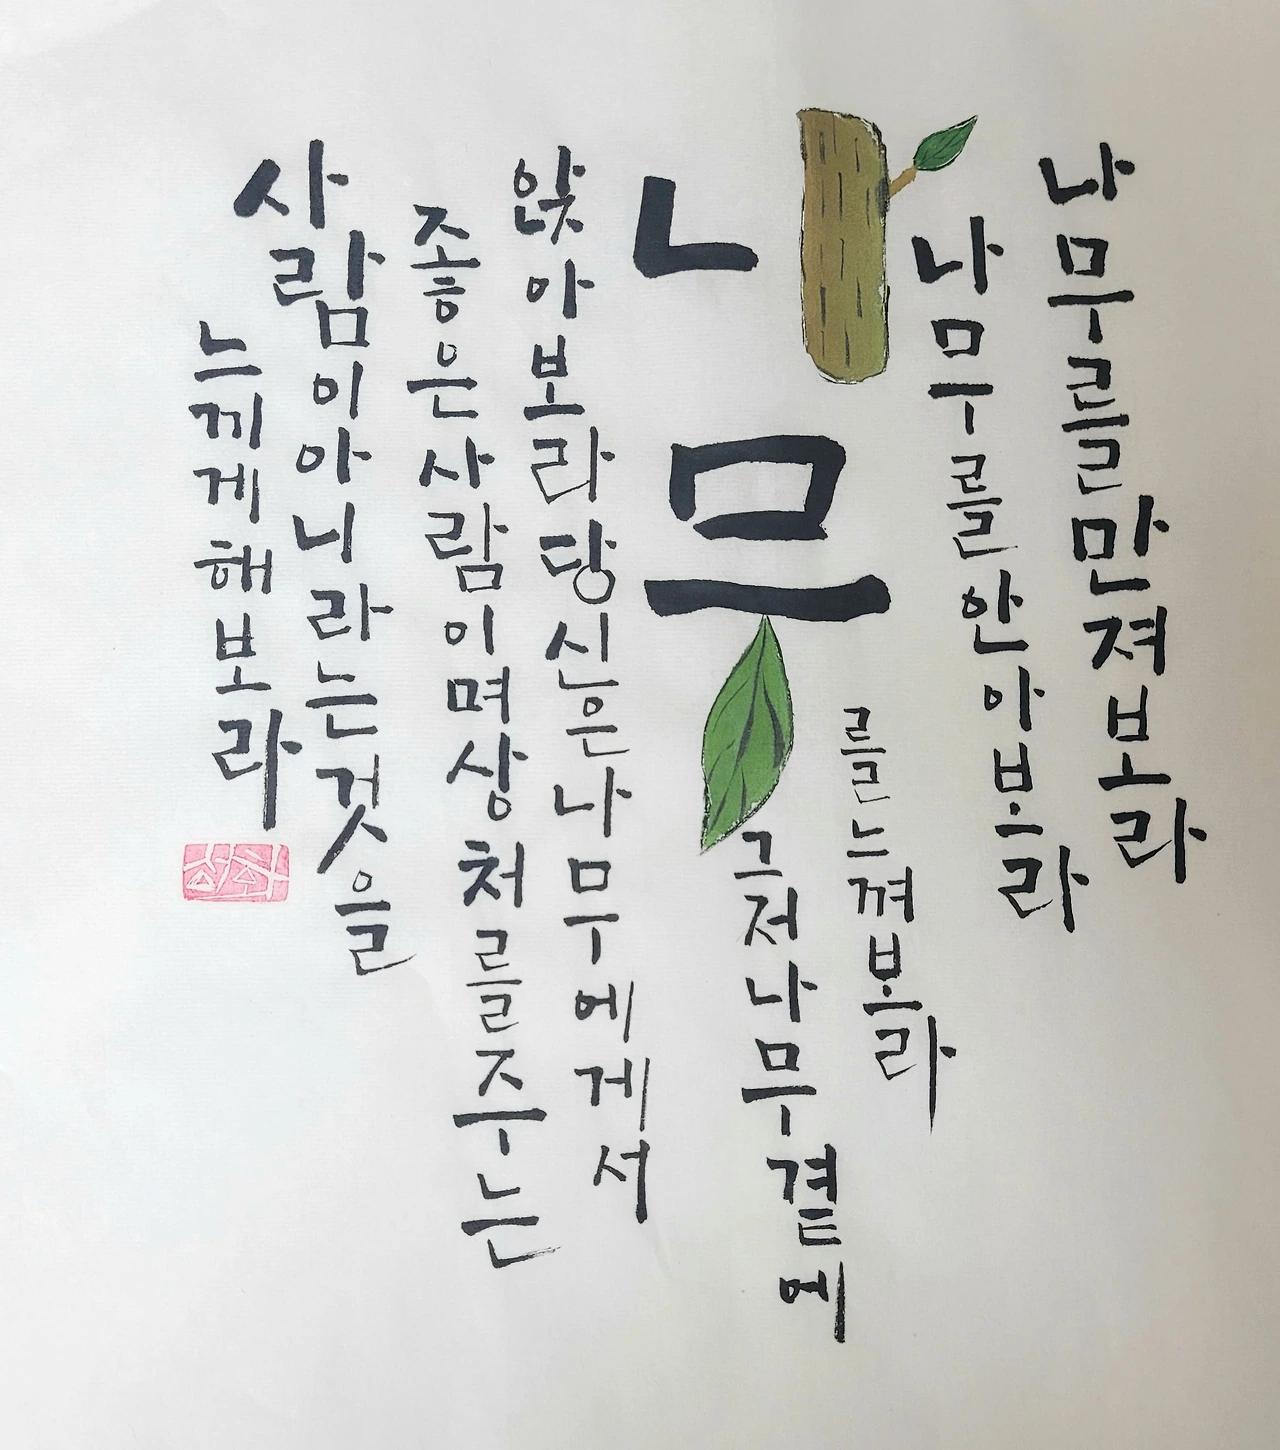 나무를만져보라
나무를안아보라
나무
를느껴보라
그저나무곁에
앉아보라당신은나무에게서
좋은사람이며상처를주는
사람이아니라는것을
느끼게해보라